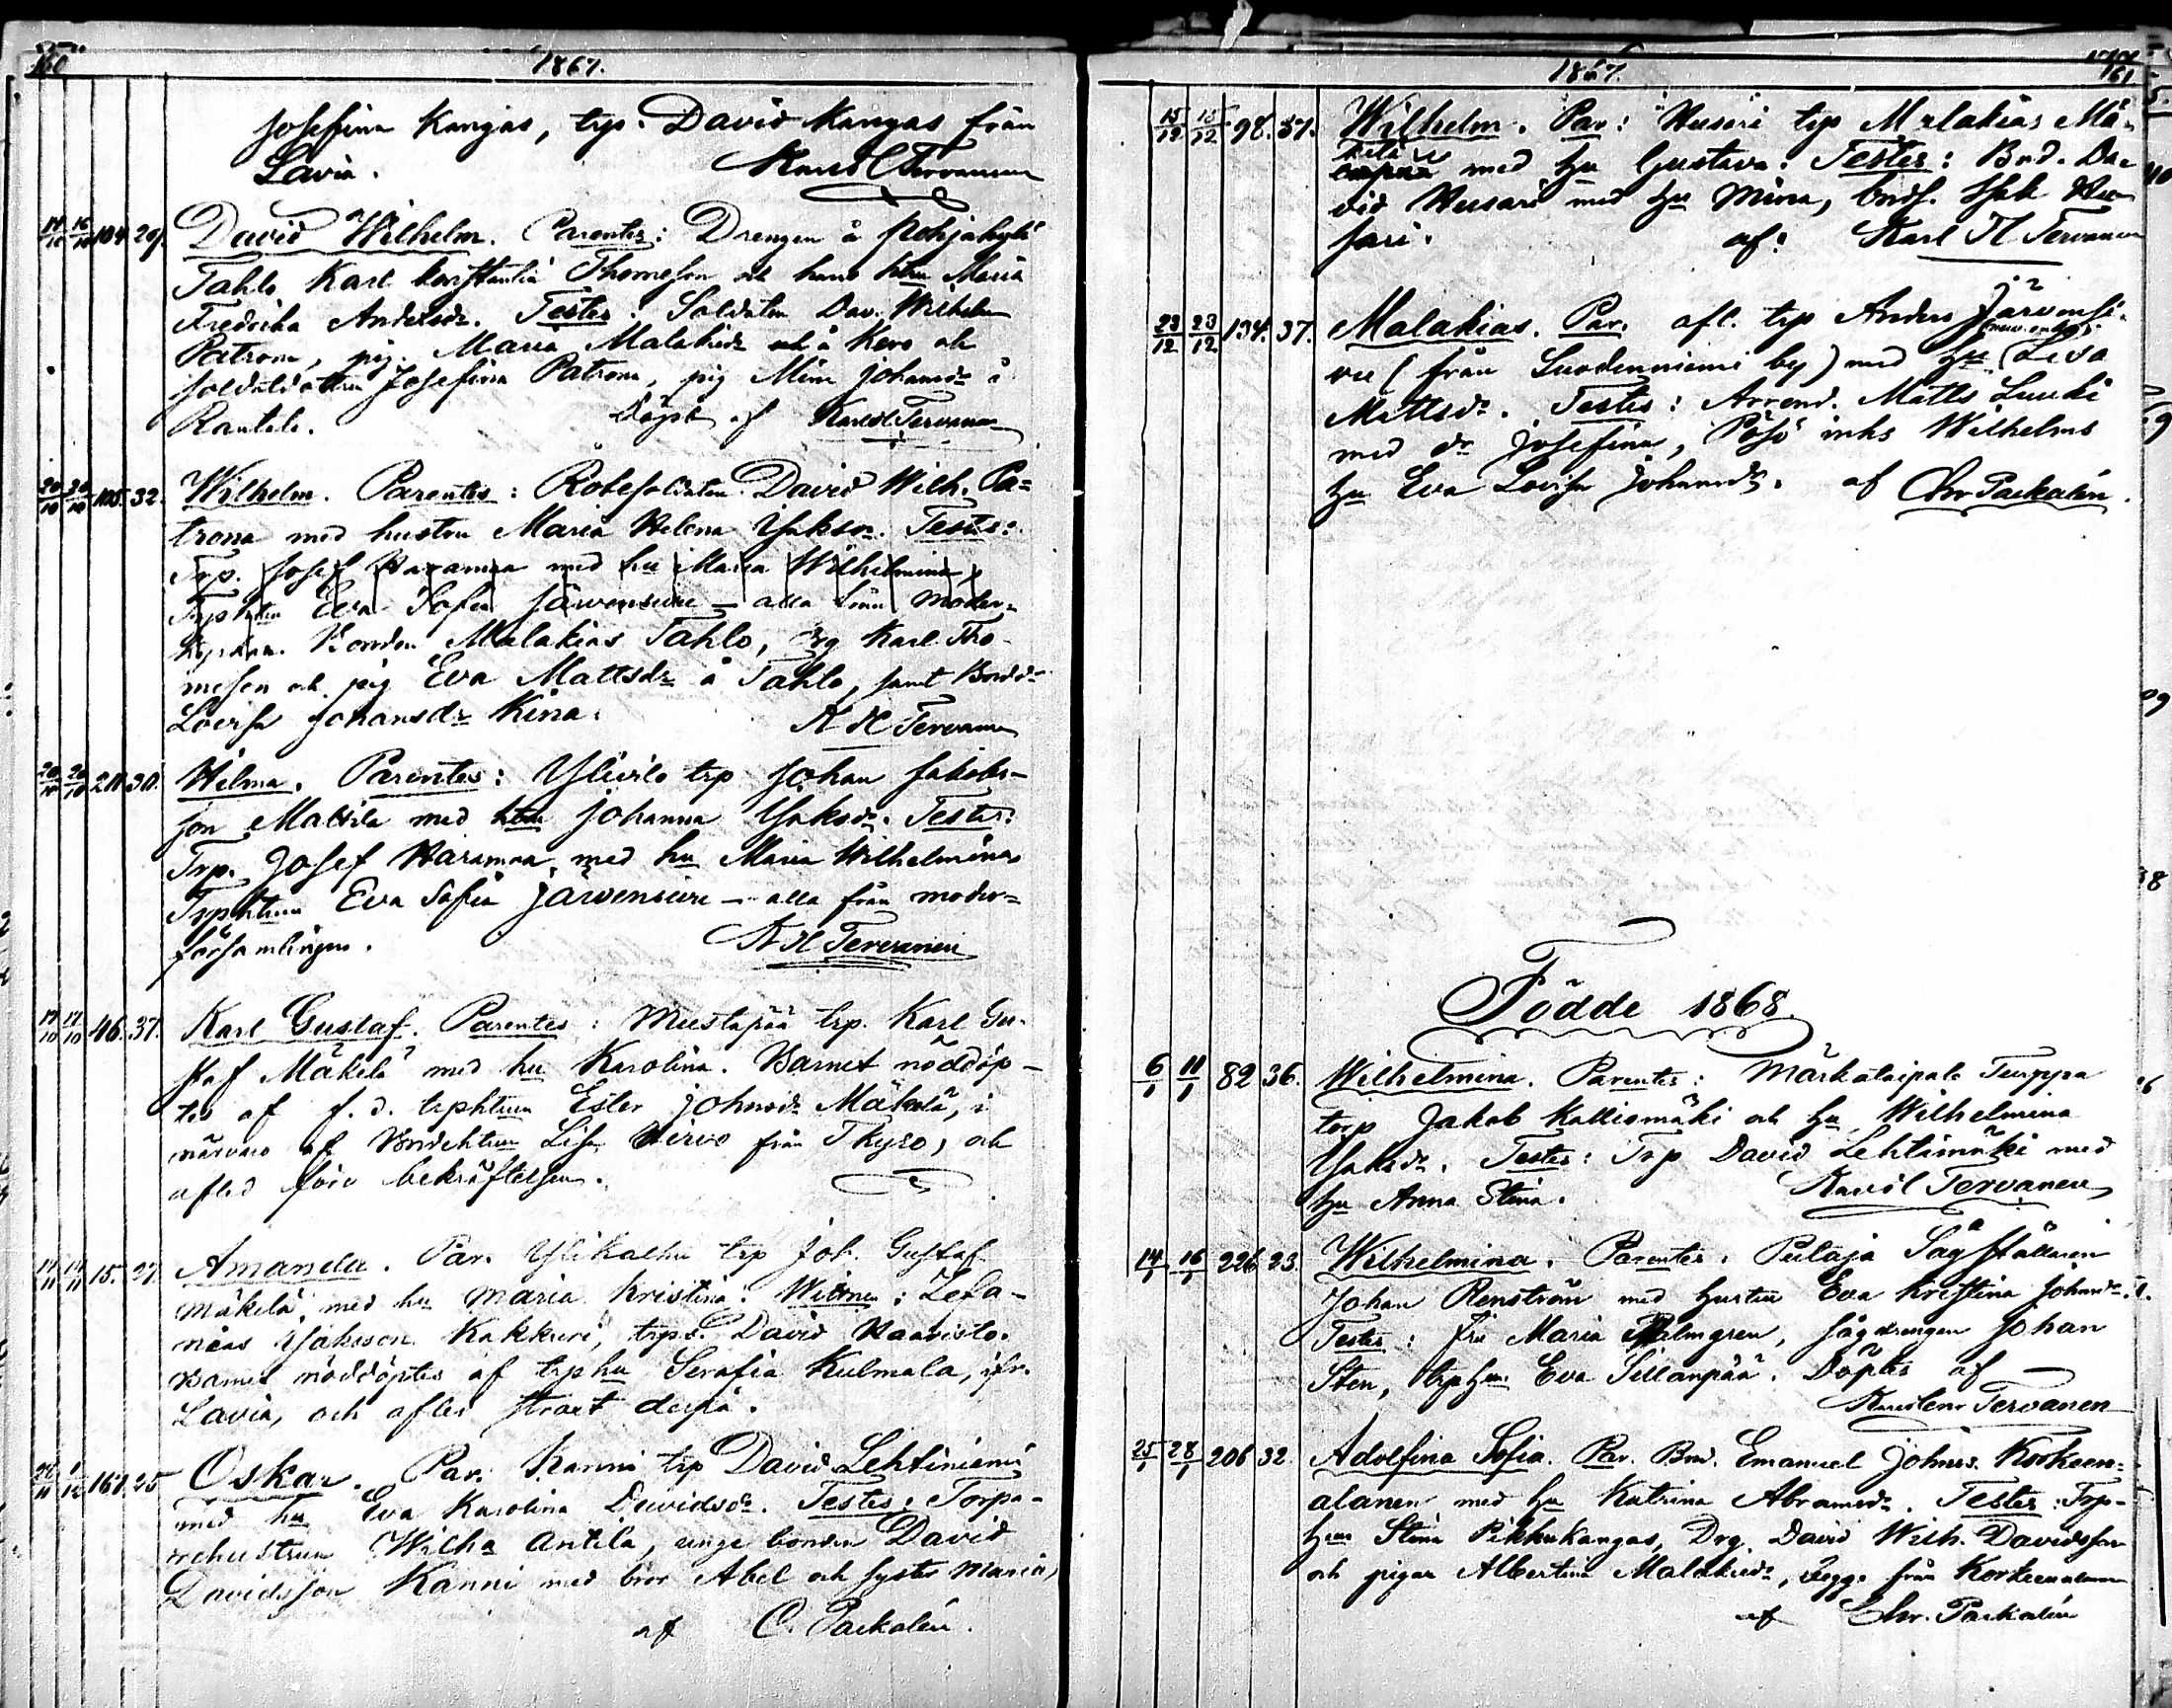 160
1867.
Josefina Kangas, trp. David Kangas från
Lavia. Karl H Tervanen
14/10 16/10 104. 29. David Wilhelm. Parentes: Drengen å Pohjakylä
Tahlo Karl Thomeson och hans hu Maria
Fredrika Andersdr. Testes: Soldaten Dav. Wilhelm
Patrona, pig. Maria Malakidr å Kero och
soldatdottren Josefina Patrona, pig Mina Johansdr å
Rantala. Döpt af Karl H Tervanen
20/10 20/10 105. 32. Wilhelm. Parentes: Rotesoldaten David Wilh. Pa=
trona med hustru Maria Helena Isaksdr. Testes:
Trp. Josef Haramaa med hu Maria Wilhelmina,
Trphtrun Eva Sofia Järvensivu – alla från moder=
Bonden Malakias Tahlo, drg Karl Tho-
meson och pig Eva Mattsdr å Tahlo, samt Bondr
Lovisa Johansdr Kina. K H Tervanen
20/10 20/10 211. 30. Hilma. Parentes: Ylivila trp Johan Jakobs-
son Mattila med hu Johanna Isaksdr. Testes:
Trp. Josef Haramaa, med hu Maria Wilhelmina,
Trphtrun Eva Sofia Järvensivu – alla från moder=
församlingen. K H Tervanen
17/10 17/10 46. 37. Karl Gustaf. Parentes: Mustapää trp. Karl Gu-
staf Mäkelä med hu Karolina. Barnet nöddöp-
tes af f. d. trphtrun Ester Johansdr Mäkelä, i
närvaro af Bondehtrun Lisa Hirvo från Tkyro, och
afled före bekräftelsen.
14/11 14/11 15. 27. Amanda. Par. Ylikalhu trp Joh. Gustaf
Mäkelä, med hu Maria Kristina. Wittnen: Zefa-
nias Isaksson Kakkuri, trps. David Haavisto.
Barnet nöddöptes af trphu Serafia Kulmala, ifr.
Lavia, och afled straxt derpå.
1/12 161. 25 Oskar. Par. Kanni trp David Lehtiniemi
med hu Eva Karolina Davidsdr. Testes: Torpa-
rehustrun Wilha Antila, unge bonden David
Davidsson Kanni med bror Abel och syster Maria,
af C. Packalén.
1867.
161
15/12 15/12 98. 37. Wilhelm. Par: Husari trp Malakias Mä-
kelä med hu Gustava. Testes: Bnd. Da-
vid Husari med hu Mina, bnds. Isak Hu-
sari. af: Karl H Tervanen
23/12 23/12 134. 37. Malakias. Par. afl. trp Anders Järvensi-
vu (från Suodenniemi by) med hu Lisa
Mattsdr. Testes: Arrend. Matts Luuki
med dr Josefina, Pösö inhs Wilhelms
hu Eva Lovisa Johansdr. af Chr Packalén.
Födde 1868.
6/1 11/1 82 36. Wilhelmina. Parentes: Märkätaipale Turppa
torp Jakob Kalliomäki och hu Wilhelmina
Isaksdr. Testes: Trp David Lehtimäki med
hu Anna Stina. Karl Tervanen
14/1 16/1 226 23. Wilhelmina. Parentes: Putaja Sågställaren
Johan Renström med hustru Eva Kristina Johansdr.
Testes: Fru Maria Palmgren, sågdrengen Johan
Sten, trphu Eva Sillanpää. Döptes af
Tervanen
25/1 28/1 206 32. Adolfina Sofia. Par. Bnd. Emanuel Johnss. Korkeen-
alanen med hu Katrina Abramsdr. Testes: Trp-
hu Stina Pikkukangas, Drg. David Wilh. Davidsson
och pigan Albertina Malakidr, begge från Korkeenalanen
af Chr. Packalén